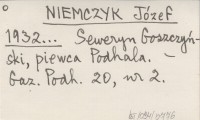 NIEMCZYK Józef
1932... Seweryn Goszczyń-
ski, piewca Podhala. –
Gaz. Podh. 20, nr 2.